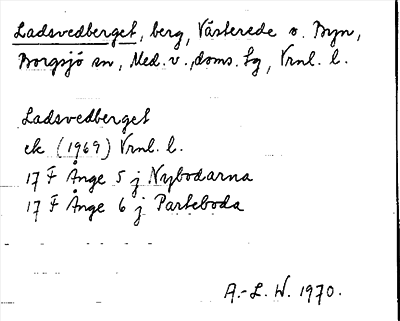 Ladsvedberget, berg, Västerede o. Byn,
Borgsjö sn, Med. v., doms. tg, Vrnl. l.
Ladsvedberget
ek (1969) Vrnl. l.
17 F Ånge 5 j Nybodarna
17 F Ånge 6 j Parteboda
A.-L. W. 1970.